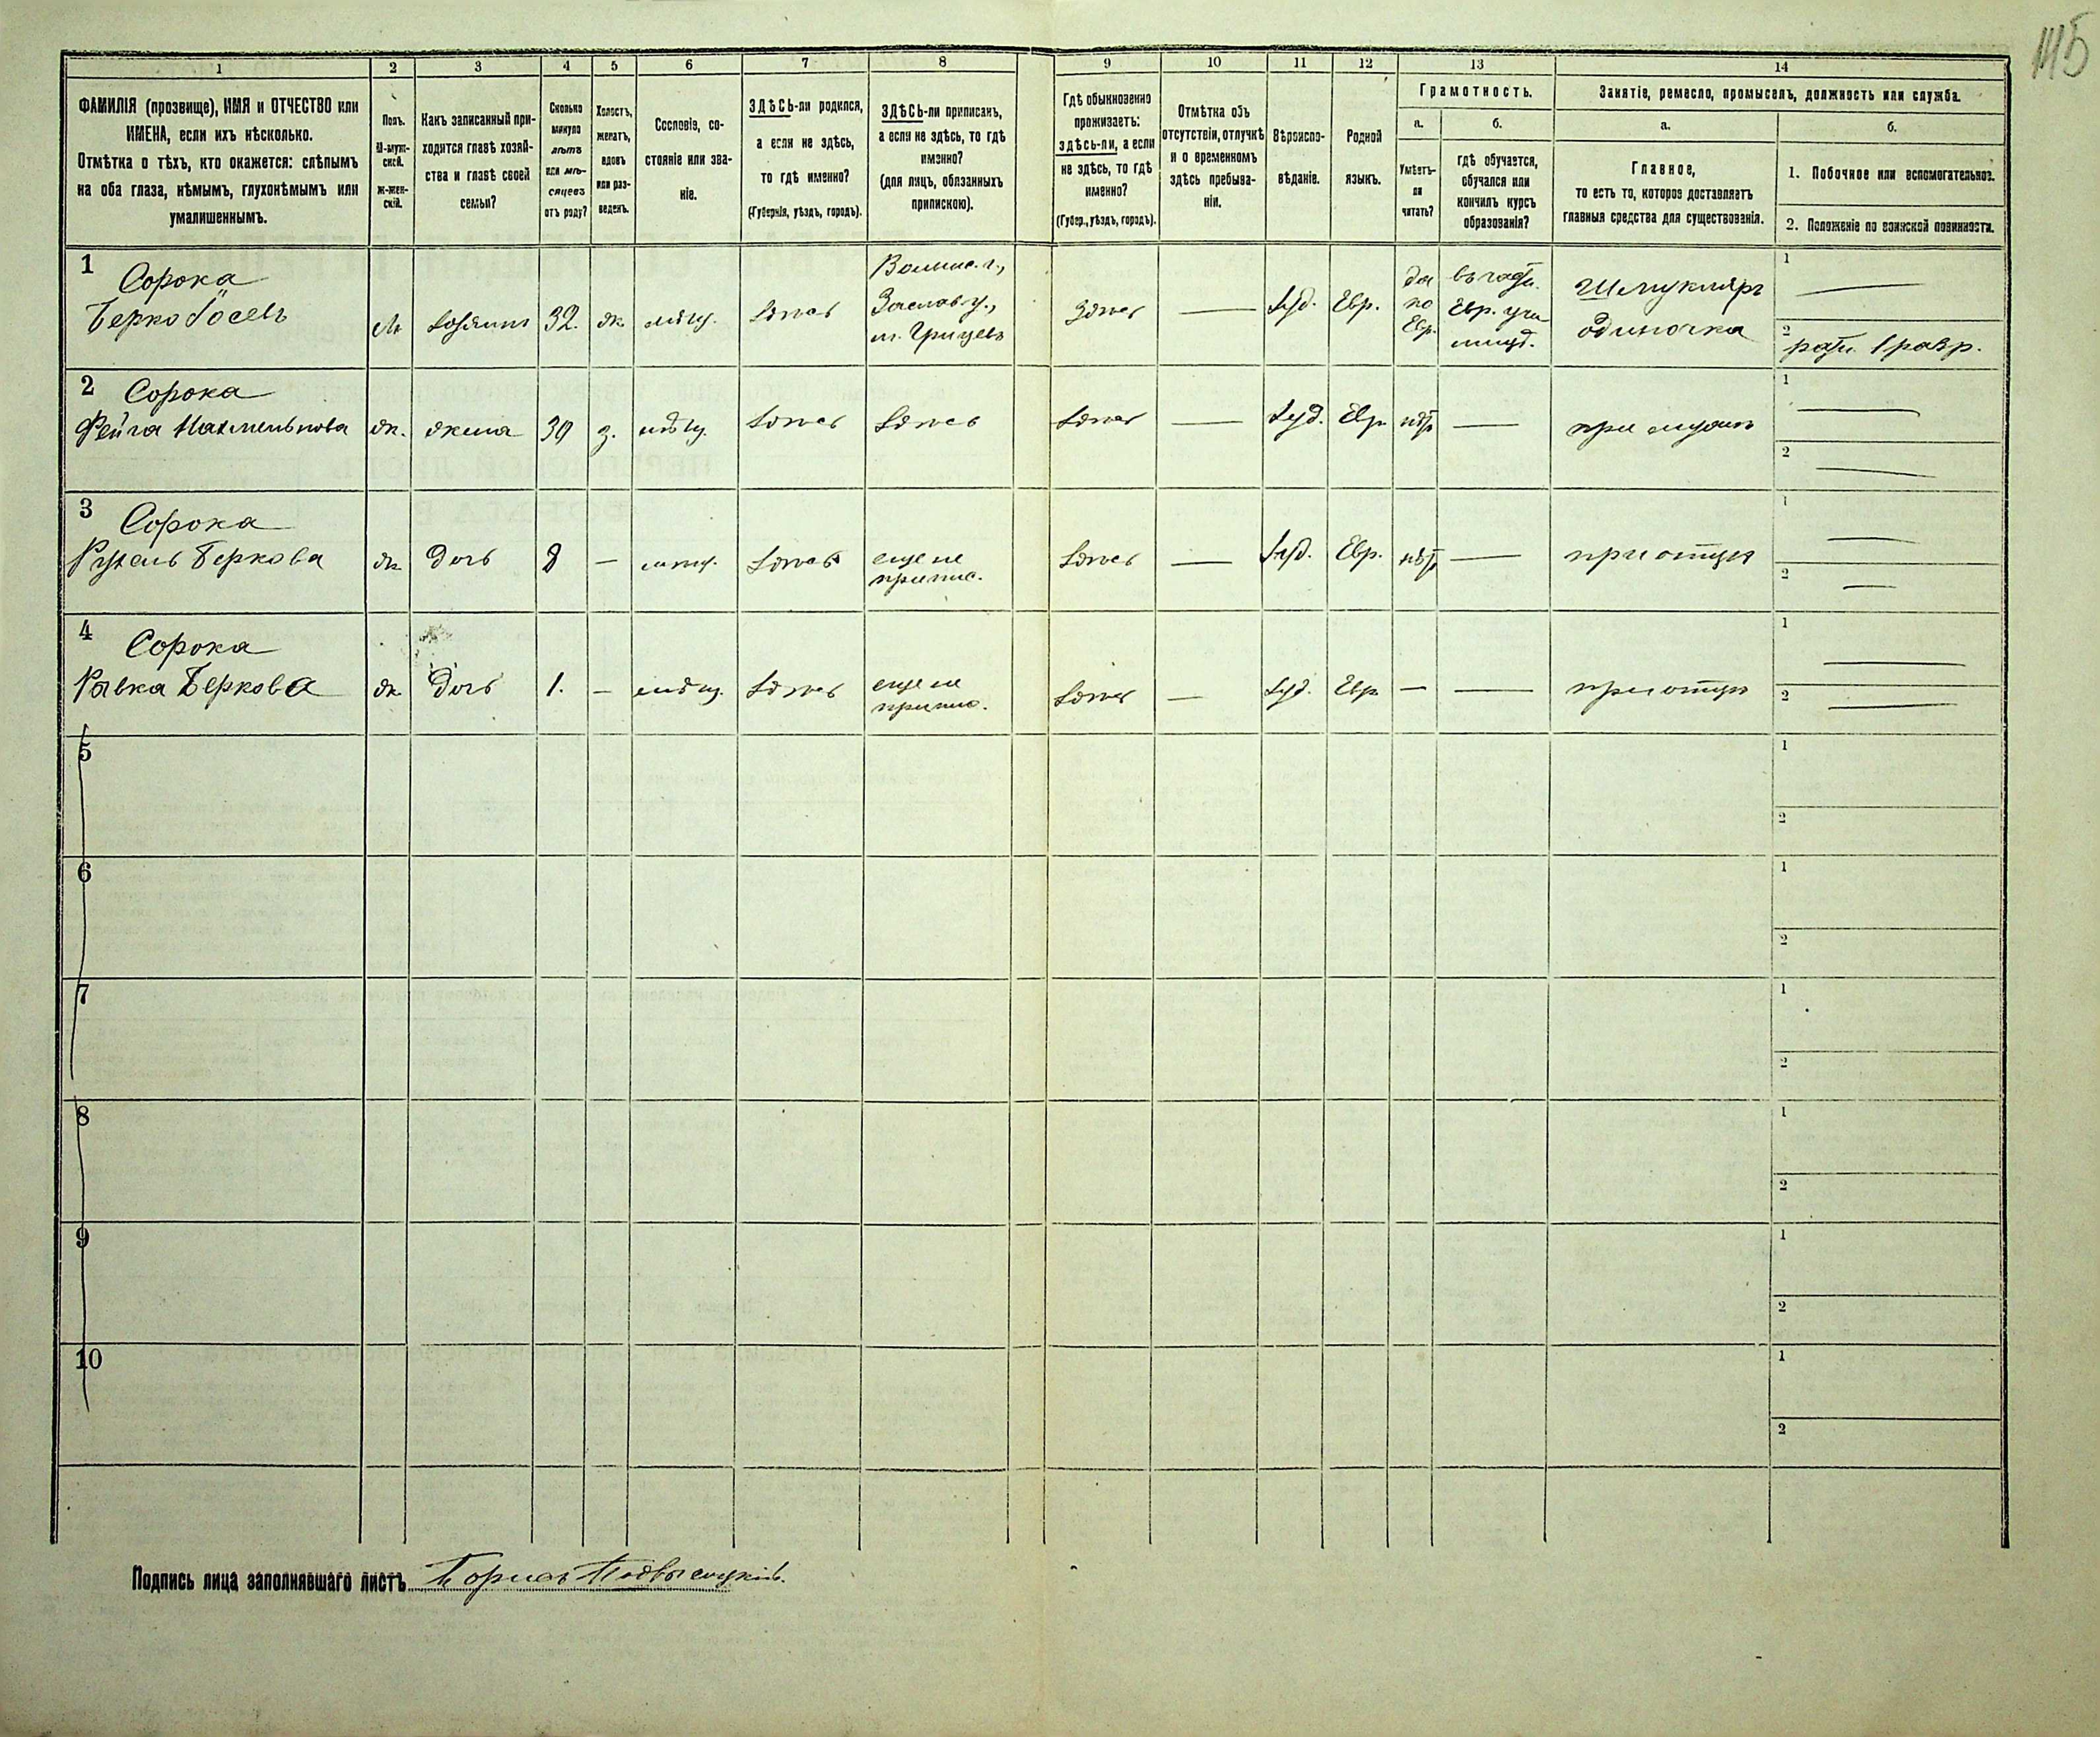 145
1
2
3
4
5
6
7
8
9
10
11
12
13
14
ФАМИЛІЯ (прозвище), ИМЯ и ОТЧЕСТВО или
ИМЕНА, если ихъ нѣсколько.
Отмѣтка о тѣхъ, кто окажется: слѣпымъ
на оба глаза, нѣмымъ, глухонѣмымъ или
умалишеннымъ.
Полъ.
М-муж-
ской.
Ж-жен-
скій.
Какъ записанный при-
ходится главѣ хозяй-
ства и главѣ своей
семьи?
Сколько
минуло
лѣтъ
или мѣ-
сяцевъ
отъ роду?
Холостъ,
женатъ,
вдовъ
или раз-
веденъ.
Сословіе, со-
стояніе или зва-
ніе.
ЗДѢСЬ-ли родился,
а если не здѣсь,
то гдѣ именно?
(Губернія, уѣздъ, городъ).
ЗДѢСЬ-ли приписанъ,
а если не здѣсь, то гдѣ
именно?
(для лицъ, обязанныхъ
припискою).
Гдѣ обыкновенно
проживаетъ:
здѣсь-ли, а если
не здѣсь, то гдѣ
именно?
(Губер., уѣздъ, городъ).
Отмѣтка объ
отсутствіи, отлучкѣ
и о временномъ
здѣсь пребыва-
ніи.
Вѣроиспо-
вѣданіе.
Родной
языкъ.
Грамотность.
а.
Умѣетъ-
ли
читать?
б.
гдѣ обучается,
обучался или
кончилъ курсъ
образованія?
Занятіе, ремесло, промыселъ, должность или служба.
а.
Главное,
то есть то, которое доставляетъ
главныя средства для существованія.
б.
1. Побочное или вспомогательное.
2. Положеніе по воинской повинности.
1
Сорока
Берко Іосевъ
м
хозяинъ
32.
ж
мѣщ.
здѣсь
Волынс. г.,
Заслав. у.,
м. Грицевъ
здѣсь
—
Іуд.
Евр.
да
по
Евр.
въ част.
Евр. учи
лищ.
Шмукляръ
одиночка
1 —
2
ратн. 1 разр.
2
Сорока
Фейга Нахменьнова
ж.
жена
30
з.
мѣщ.
здѣсь
здѣсь
здѣсь
—
Іуд.
Евр.
нѣт
—
при мужѣ
1 —
2 —
3
Сорока
Рухель Беркова
ж.
дочь
8
—
мѣщ.
здѣсь
еще не
припис.
здѣсь
—
Іуд.
Евр.
нѣт
—
при отцѣ
1 —
2 —
4
Сорока
Ривка Беркова
ж.
дочь
1.
—
мѣщ.
здѣсь
еще не
припис.
здѣсь
—
Іуд.
Евр
—
—
при отцѣ
1 —
2 —
5
1
2
6
1
2
7
1
2
8
1
2
9
1
2
10
1
2
Подпись лица заполнявшаго листъ Борисъ Подвысоцкій.